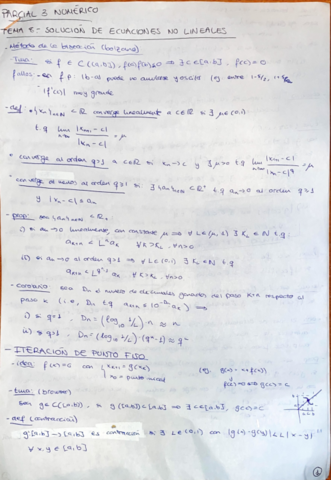 PARCIAL 3 NUMÉRICO
TEMA 5 - SOLUCIÓN DE ECUACIONES NO LINEALES
- Método de la bisección (bolzano)
- Tma: si f ∈ C([a,b]), f(a)f(b)<0 ⇒ ∃ c∈[a,b], f(c)=0
|f'(c)| muy grande
- def: {x_n}n∈ℕ ⊂ ℝ converge linealmente a c∈ℝ si ∃ μ∈(0,1)
t.q lim |x_{n+1}-c| / |x_n-c| = μ
* converge al orden q>1 a c∈ℝ si x_n→c y ∃ μ>0 t.q lim |x_{n+1}-c| / |x_n-c|^q = μ
* converge al menos al orden q≥1 si ∃ {a_n}n∈ℕ ⊂ ℝ⁺ t.q a_n→0 al orden q≥1
y |x_n-c| ≤ a_n
- prop: sea {a_n} ⊂ ℝ₊
i) si a_n→0 linealmente, con constante μ ⇒ ∀ L∈(μ,1) ∃ k₀∈ℕ t.q
ii) si a_n→0 al orden q>1 ⇒ ∀ L∈(0,1) ∃ k₀ t.q
- corolario: sea D_n el número de decimales ganados en paso k+n respecto al
paso k
i) si q=1, D_n = (log₁₀ 1/L) · n ≈ n
ii) si q>1, D_n = (log₁₀ 1/L) · (qⁿ-1) ≈ qⁿ
- ITERACIÓN DE PUNTO FIJO
- idea: f(c)=0 con { x_{k+1} = g(x_k)
x₀ = punto inicial
(ej. g(x) = x+f(x))
f(c)=0 ⇔ g(c)=c
- tma: (brower)
Sea g∈C([a,b]), si g([a,b])⊂[a,b] ⇒ ∃ c∈[a,b], g(c)=c
- def (contracción)
g:[a,b]→[a,b] es contracción si ∃ L∈(0,1) con |g(x)-g(y)| ≤ L|x-y|
∀ x,y ∈ [a,b]